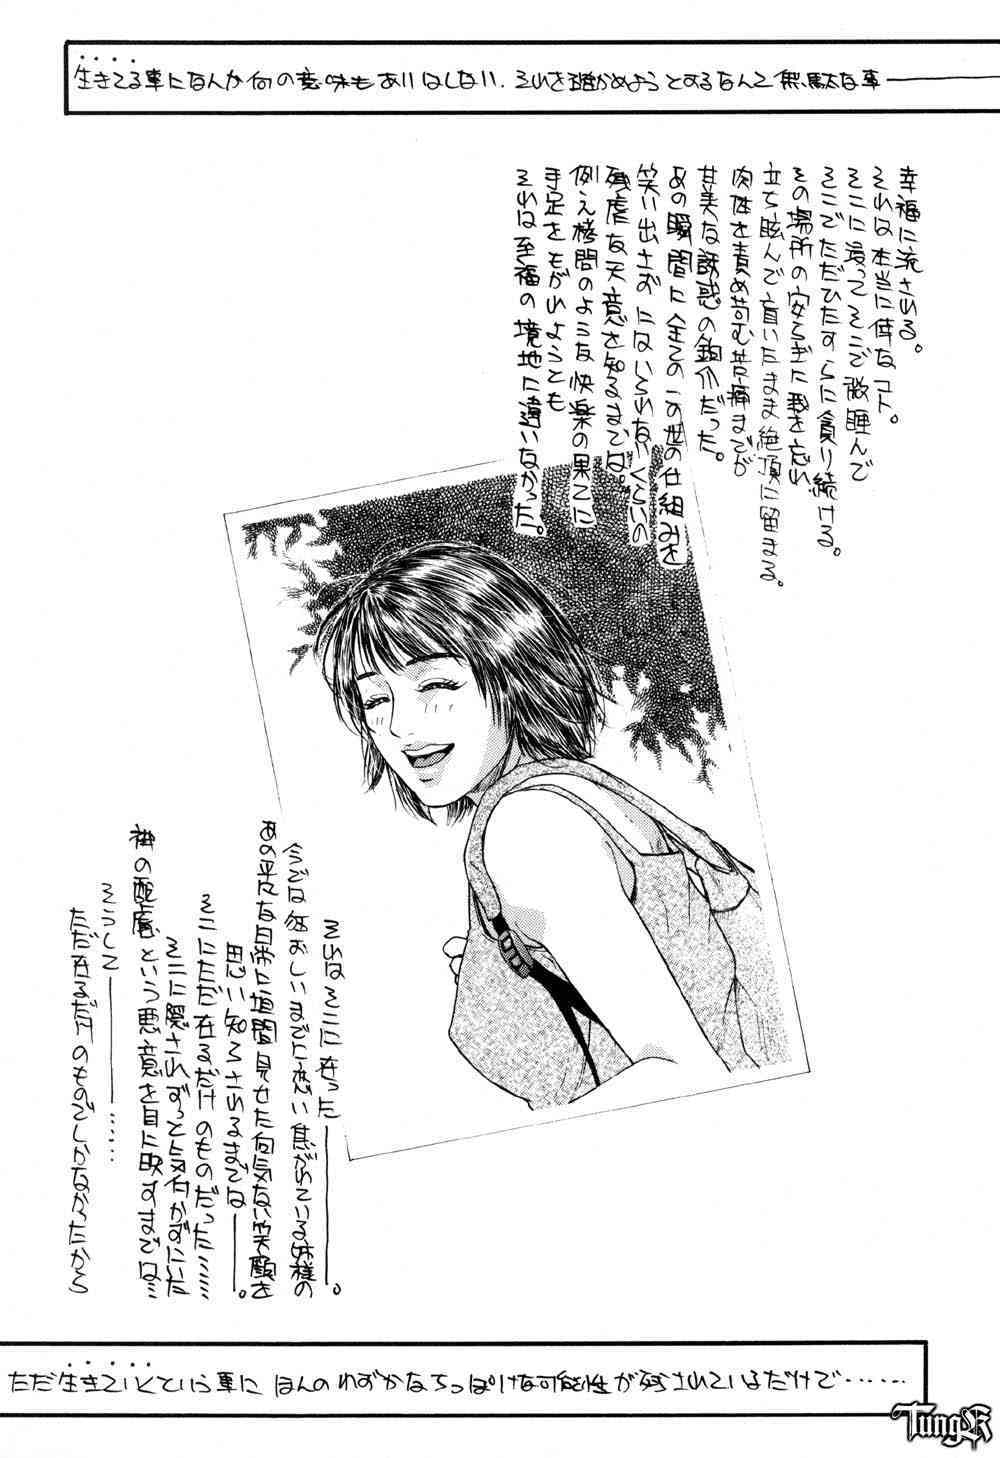 生きてる事になんか何の意味もありはしない. それを確かめようとするなんて無駄な事――
幸福に流される。
それは本当に倖なコト。
そこに浸ってそこで微睡んで
そこでただひたすらに貪り続ける。
その場所の安らぎに我を忘れ
立ち眩んで盲いたまま絶頂に留まる。
肉体を責め苛む苦痛までが
甘美な誘惑の鉤爪だった。
あの瞬間に全てのこの世の仕組みを
笑い出さずにいられないくらいの
残虐な天意を知るまでは。
例え拷問のような快楽の果てに
手足をもがれようとも
それは至福の境地に違いなかった。
それはそこに在った――――。
今では狂おしいまでに想い焦がれている姉様の
あの平凡な日常に垣間見せた何気ない笑顔を
思い知らされるまでは――。
そこにただ在るだけのものだった……
そこに隠されずっと気付かずにいた
神の配慮という悪意を目に映すまでは…
そうして――――……
ただ在るだけのものでしかなかったから
ただ生きていくという事に ほんのわずかなちっぽけな可能性が残されているだけで……
TungK